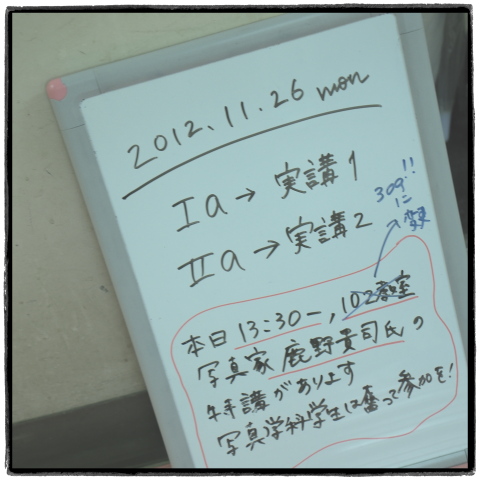 2012.11.26 mon
Ia→実講1
IIa→実講2
309に変更!!
本日13:30ー,102教室
写真家 鹿野貴司氏の
特講があります
写真学科学生は奮って参加を!